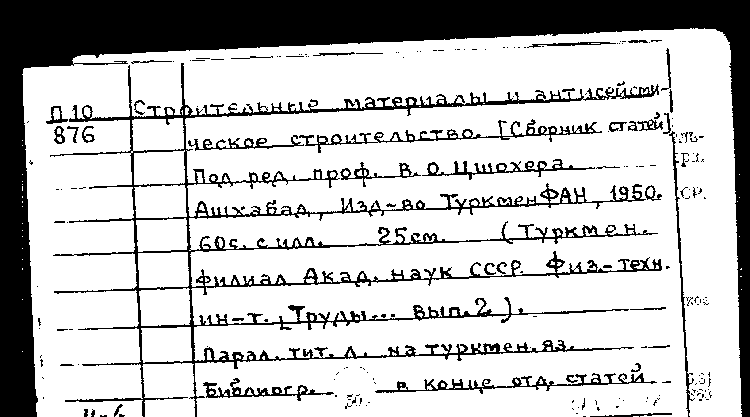 П10 Строительные материалы и антисейсми-
876 ческое строительство. [Сборник статей]
Под ред. проф. В. О. Цшохера.
Ашхабад, Изд-во ТуркменФАН, 1950.
60с. с илл. 25см. (Туркмен.
филиал Акад. наук СССР. Физ.-техн.
ин-т. [Труды... вып.2).
Парал. тит. л. на туркмен. яз.
Библиогр. в конце отд. статей